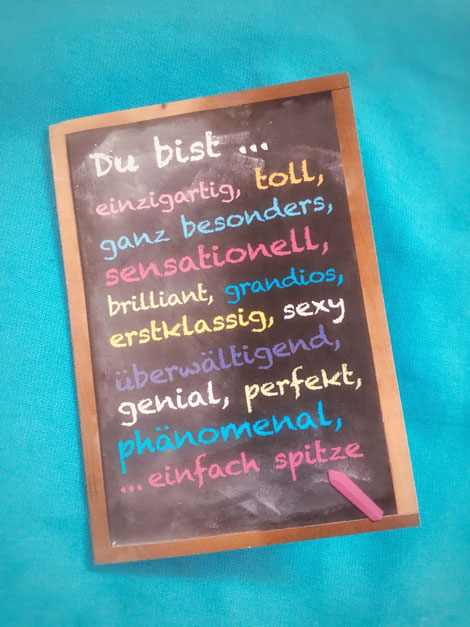 Du bist ...
einzigartig, toll,
ganz besonders,
sensationell,
brilliant, grandios,
erstklassig, sexy
überwältigend,
genial, perfekt,
phänomenal,
... einfach spitze